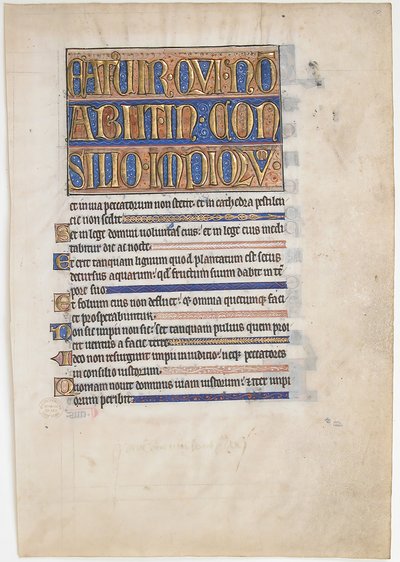 ṄATUIR·QVI·NO
ABIIT·IN·CON
SILIO·IMPIORV·
et in via peccatorum non stetit: et in cathedra pestilen
tie non sedit.
Set in lege domini voluntas eius: et in lege eius medi
tabitur die ac nocte.
Et erit tanquam lignum quod plantatum est secus
decursus aquarum: qd fructum suum dabit in te
pore suo.
Et folium eius non defluet: & omnia quecumq; faci
et prosperabuntur.
Non sic impii non sic: set tanquam puluis quem proi
cit ventus a facie terre.
Ideo non resurgunt impii in iudicio: neq; peccatores
in consilio iustorum.
Quoniam nouit dominus uiam iustorum: & iter impi
orum peribit.